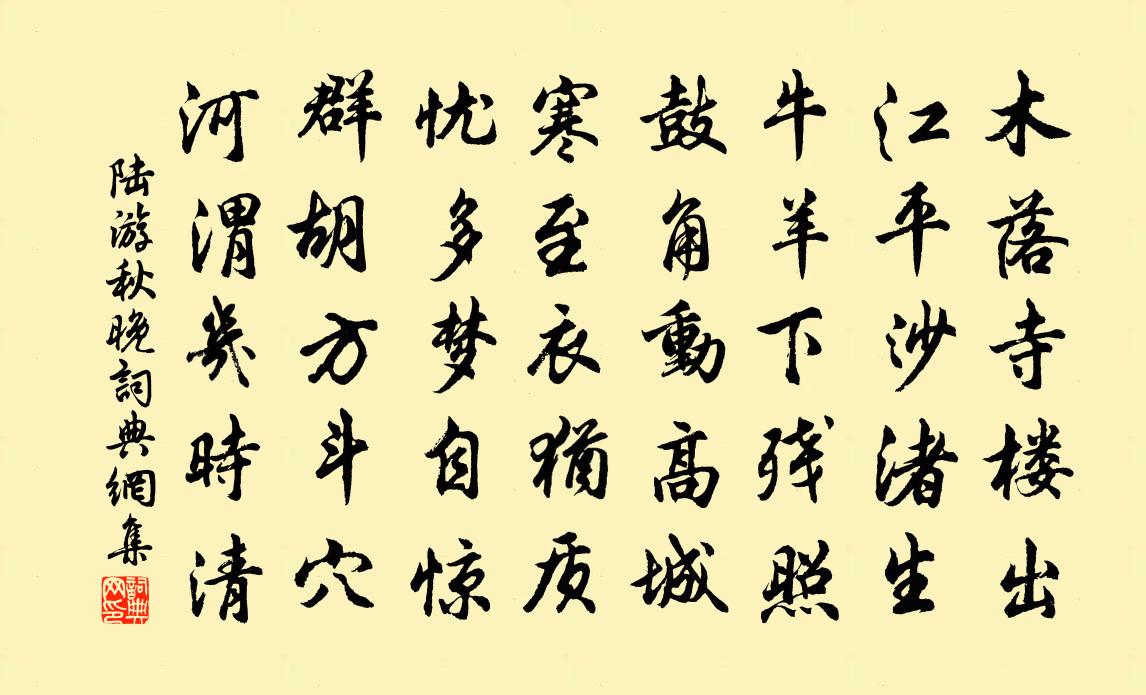 木落寺楼出
江平沙渚生
牛羊下残照
鼓角動高城
寒至衣猶质
忧多梦自惊
群胡方斗穴
河渭幾時清
陆游秋晚詞典網集
詞典
网印